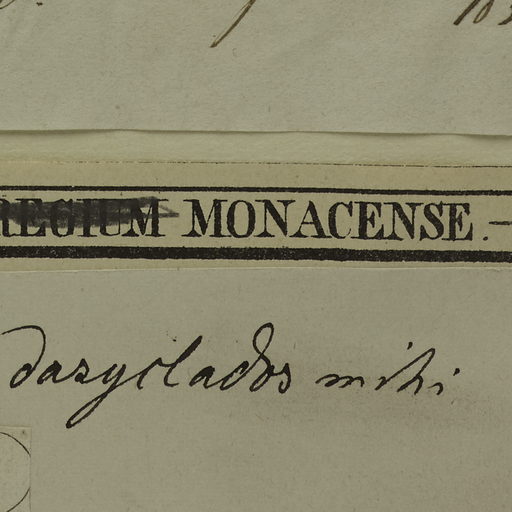 REGIUM MONACENSE.—
dasyclados mihi